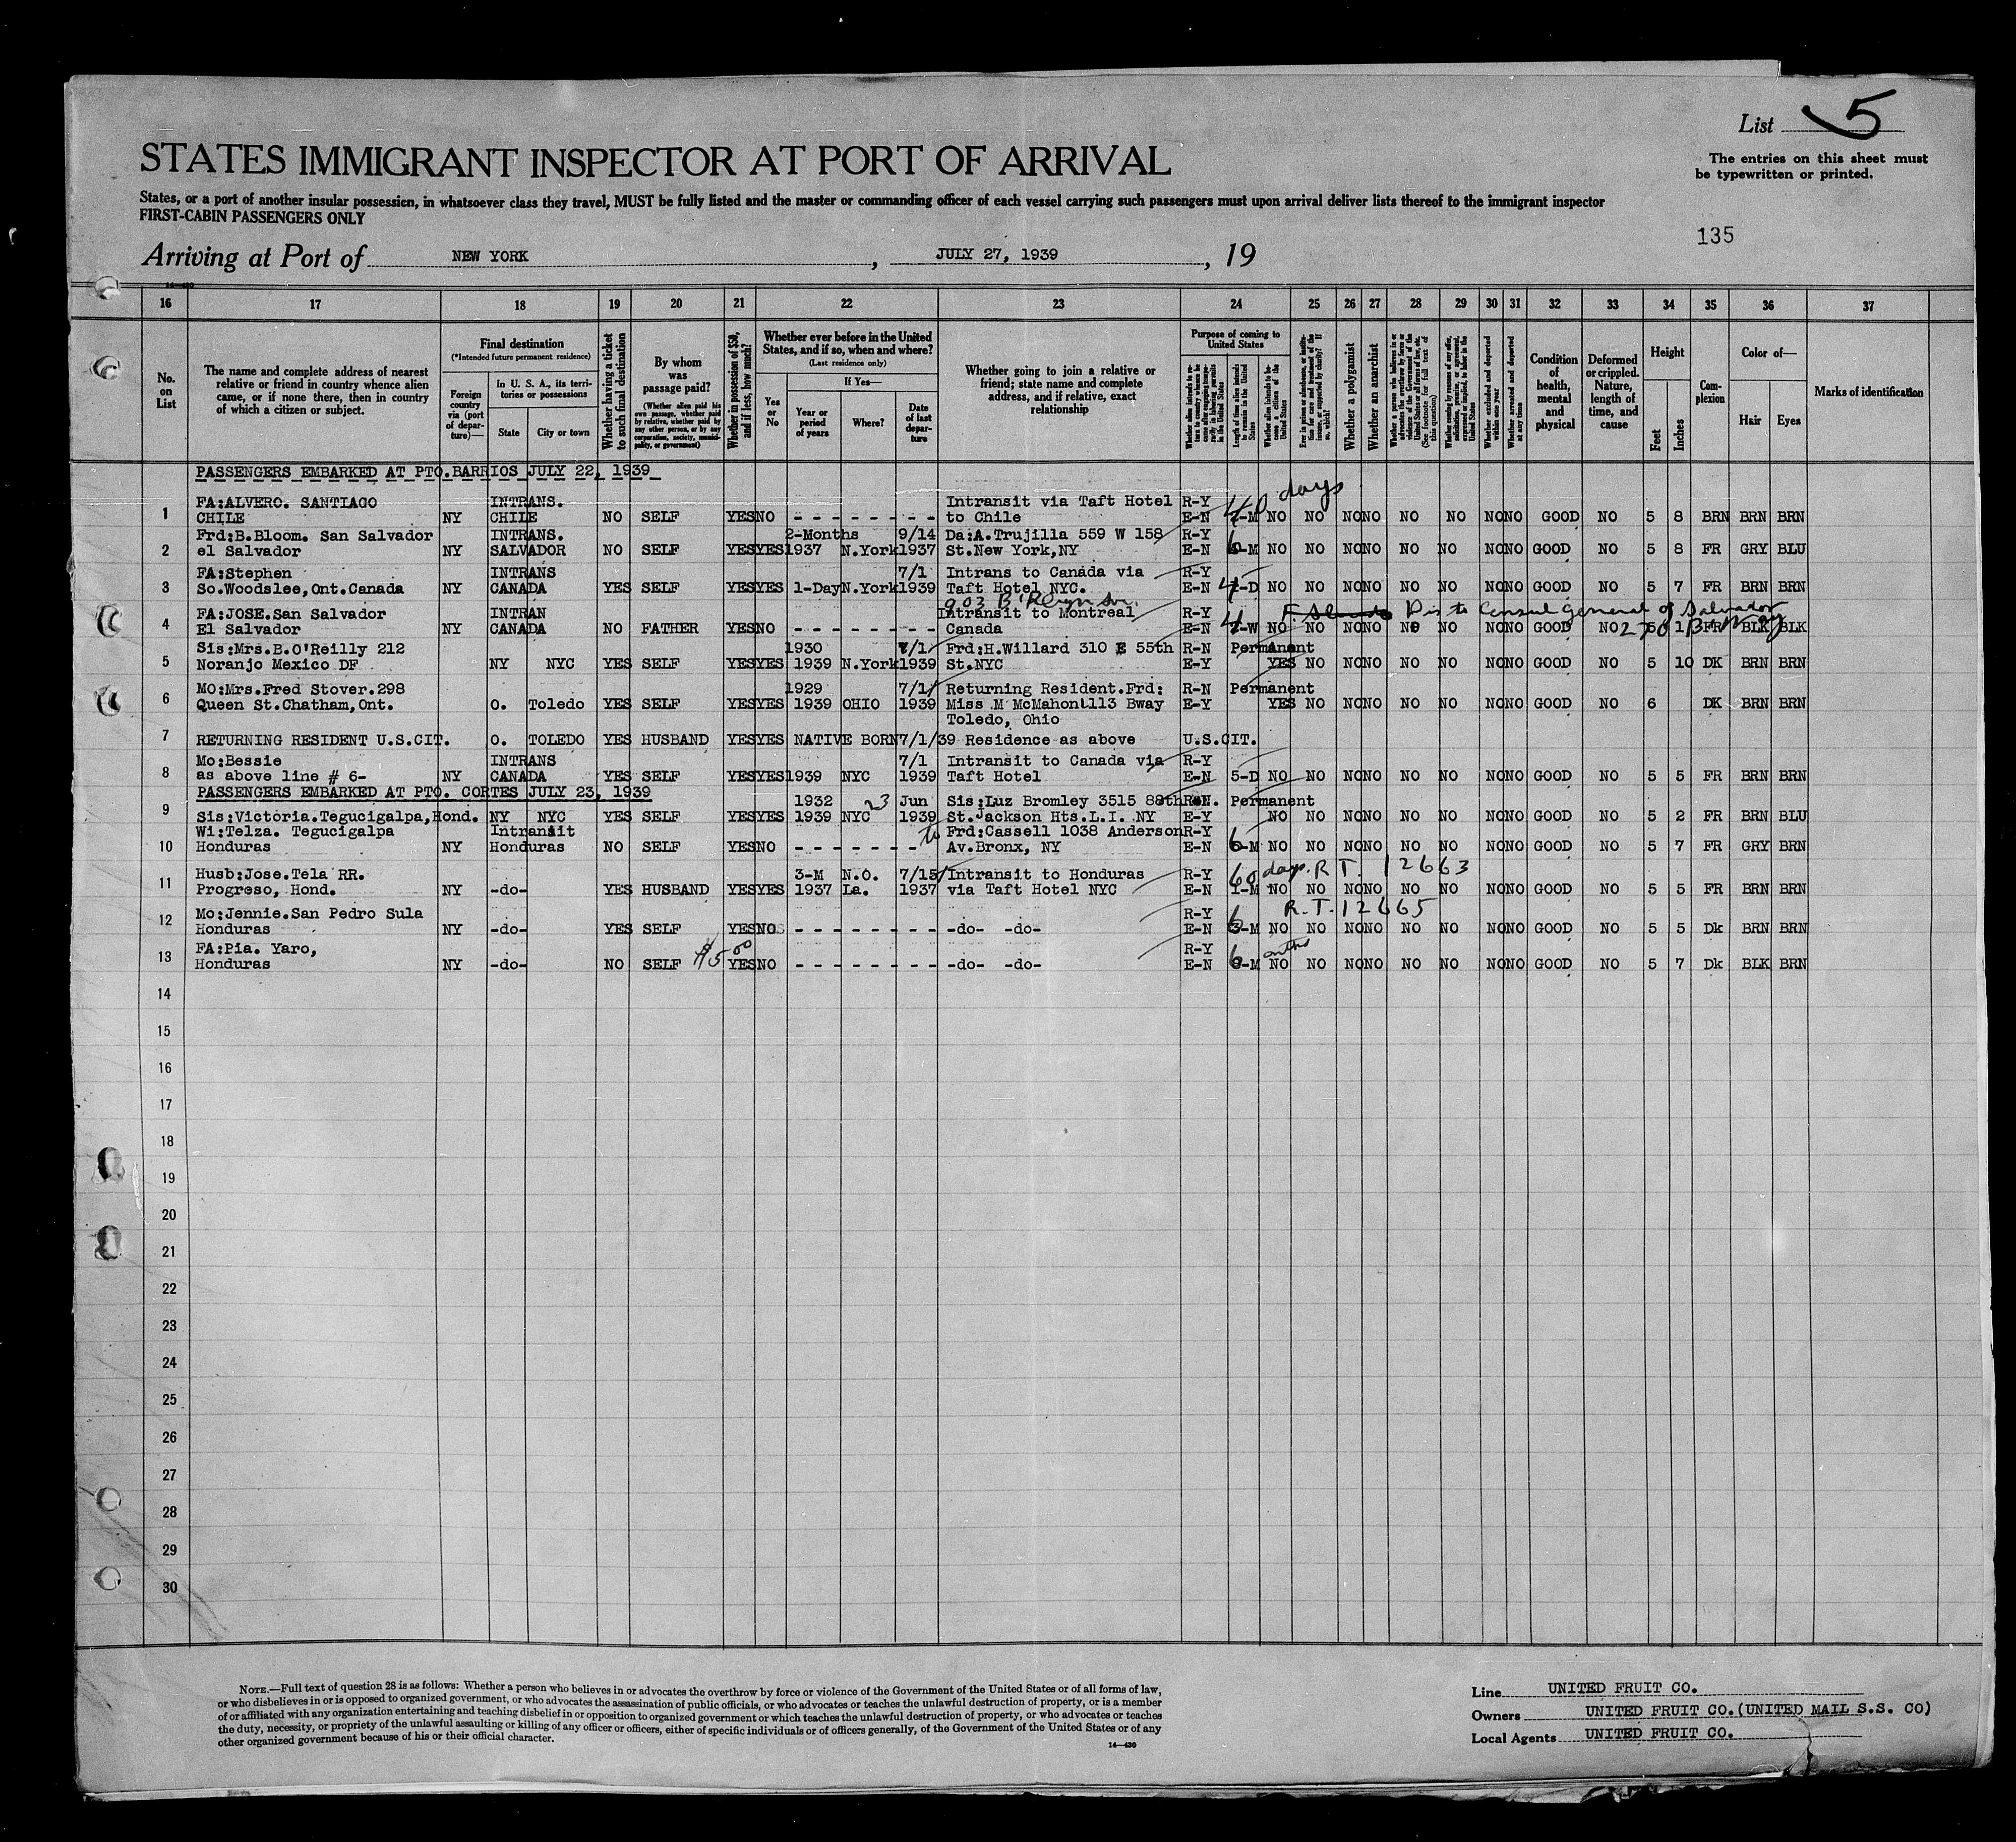 List 5
STATES IMMIGRANT INSPECTOR AT PORT OF ARRIVAL
The entries on this sheet must
be typewritten or printed.
States, or a port of another insular possession, in whatsoever class they travel, MUST be fully listed and the master or commanding officer of each vessel carrying such passengers must upon arrival deliver lists thereof to the immigrant inspector
FIRST-CABIN PASSENGERS ONLY
135
Arriving at Port of NEW YORK, JULY 27, 1939, 19
14-430
16 17 18 19 20 21 22 23 24 25 26 27 28 29 30 31 32 33 34 35 36 37
No. on List
The name and complete address of nearest relative or friend in country whence alien came, or if none there, then in country of which a citizen or subject.
Final destination
(*Intended future permanent residence)
Foreign country via (port of departure)—
In U. S. A., its territories or possessions
State
City or town
Whether having a ticket to such final destination
By whom was passage paid?
(Whether alien paid his own passage, whether paid by relative, whether paid by any other person, or by any corporation, society, municipality, or government)
Whether in possession of $50, and if less, how much?
Whether ever before in the United States, and if so, when and where?
(Last residence only)
Yes or No
If Yes—
Year or period of years
Where?
Date of last departure
Whether going to join a relative or friend; state name and complete address, and if relative, exact relationship
Purpose of coming to United States
Whether alien intends to return to country whence he came after engaging temporarily in laboring pursuits in the United States
Length of time alien intends to remain in the United States
Whether alien intends to become a citizen of the United States
Ever in prison or almshouse, or institution for care and treatment of the insane, or supported by charity? If so, which?
Whether a polygamist
Whether an anarchist
Whether a person who believes in or advocates the overthrow by force or violence of the Government of the United States or all forms of law, etc. (See footnote for full text of this question)
Whether coming by reason of any offer, solicitation, promise, or agreement, expressed or implied, to labor in the United States
Whether excluded and deported within one year
Whether arrested and deported at any time
Condition of health, mental and physical
Deformed or crippled. Nature, length of time, and cause
Height
Feet
Inches
Complexion
Color of—
Hair
Eyes
Marks of identification
PASSENGERS EMBARKED AT PTO.BARRIOS JULY 22, 1939
FA:ALVERO. SANTIAGO INTRANS. Intransit via Taft Hotel R-Y 40 days
1 CHILE NY CHILE NO SELF YES NO - - - - - - - - to Chile E-N -M NO NO NO NO NO NO NO NO GOOD NO 5 8 BRN BRN BRN
Frd:B.Bloom. San Salvador INTRANS. 2-Months 9/14 Da:A.Trujilla 559 W 158 R-Y
2 el Salvador NY SALVADOR NO SELF YES YES 1937 N.York 1937 St.New York,NY E-N 6-M NO NO NO NO NO NO NO NO GOOD NO 5 8 FR GRY BLU
FA:Stephen INTRANS 7/1 Intrans to Canada via R-Y
3 So.Woodslee,Ont.Canada NY CANADA YES SELF YES YES 1-Day N.York 1939 Taft Hotel NYC. E-N 4-D NO NO NO NO NO NO NO NO GOOD NO 5 7 FR BRN BRN
903 B'klyn Av.
FA:JOSE.San Salvador INTRAN Intransit to Montreal R-Y Consul General of Salvador
4 El Salvador NY CANADA NO FATHER YES NO - - - - - - - - Canada E-N 4-W NO NO NO NO NO NO NO NO GOOD NO 5 1 FR BLK BLK 270 B'way
Sis:Mrs.B.O'Reilly 212 1930 7/1 Frd:H.Willard 310 E 55th R-N Permanent
5 Noranjo Mexico DF NY NYC YES SELF YES YES 1939 N.York 1939 St.NYC E-Y YES NO NO NO NO NO NO NO GOOD NO 5 10 DK BRN BRN
MO:Mrs.Fred Stover.298 1929 7/1 Returning Resident.Frd: R-N Permanent
6 Queen St.Chatham,Ont. O. Toledo YES SELF YES YES 1939 OHIO 1939 Miss M McMahon1113 Bway E-Y YES NO NO NO NO NO NO NO GOOD NO 6 DK BRN BRN
Toledo, Ohio
7 RETURNING RESIDENT U.S.CIT. O. TOLEDO YES HUSBAND YES YES NATIVE BORN 7/1/39 Residence as above U.S.CIT.
Mo:Bessie INTRANS 7/1 Intransit to Canada via R-Y
8 as above line # 6- NY CANADA YES SELF YES YES 1939 NYC 1939 Taft Hotel E-N 5-D NO NO NO NO NO NO NO NO GOOD NO 5 5 FR BRN BRN
PASSENGERS EMBARKED AT PTO. CORTES JULY 23, 1939
1932 23 Jun Sis:Luz Bromley 3515 88th R-N. Permanent
9 Sis:Victoria.Tegucigalpa,Hond. NY NYC YES SELF YES YES 1939 NYC 1939 St.Jackson Hts.L.I. NY E-Y NO NO NO NO NO NO NO NO GOOD NO 5 2 FR BRN BLU
Wi:Telza. Tegucigalpa Intransit to Frd:Cassell 1038 Anderson R-Y
10 Honduras NY Honduras NO SELF YES NO - - - - - - - Av.Bronx, NY E-N 6-M NO NO NO NO NO NO NO NO GOOD NO 5 7 FR GRY BRN
Husb:Jose.Tela RR. 3-M N.O. 7/15/ Intransit to Honduras R-Y 60 days. R.T. 12663
11 Progreso, Hond. NY -do- YES HUSBAND YES YES 1937 La. 1937 via Taft Hotel NYC E-N 1-M NO NO NO NO NO NO NO NO GOOD NO 5 5 FR BRN BRN
Mo:Jennie.San Pedro Sula R-Y R.T. 12665
12 Honduras NY -do- YES SELF YES NO - - - - - - - - -do- -do- E-N 6-M NO NO NO NO NO NO NO NO GOOD NO 5 5 Dk BRN BRN
FA:Pia. Yaro, R-Y 6
13 Honduras NY -do- NO SELF $500 YES NO - - - - - - - - -do- -do- E-N -M NO NO NO NO NO NO NO NO GOOD NO 5 7 Dk BLK BRN
14
15
16
17
18
19
20
21
22
23
24
25
26
27
28
29
30
NOTE.—Full text of question 28 is as follows: Whether a person who believes in or advocates the overthrow by force or violence of the Government of the United States or of all forms of law,
or who disbelieves in or is opposed to organized government, or who advocates the assassination of public officials, or who advocates or teaches the unlawful destruction of property, or is a member
of or affiliated with any organization entertaining and teaching disbelief in or opposition to organized government or which teaches the unlawful destruction of property, or who advocates or teaches
the duty, necessity, or propriety of the unlawful assaulting or killing of any officer or officers, either of specific individuals or of officers generally, of the Government of the United States or of any
other organized government because of his or their official character.
14-430
Line UNITED FRUIT CO.
Owners UNITED FRUIT CO.(UNITED MAIL S.S. CO)
Local Agents UNITED FRUIT CO.